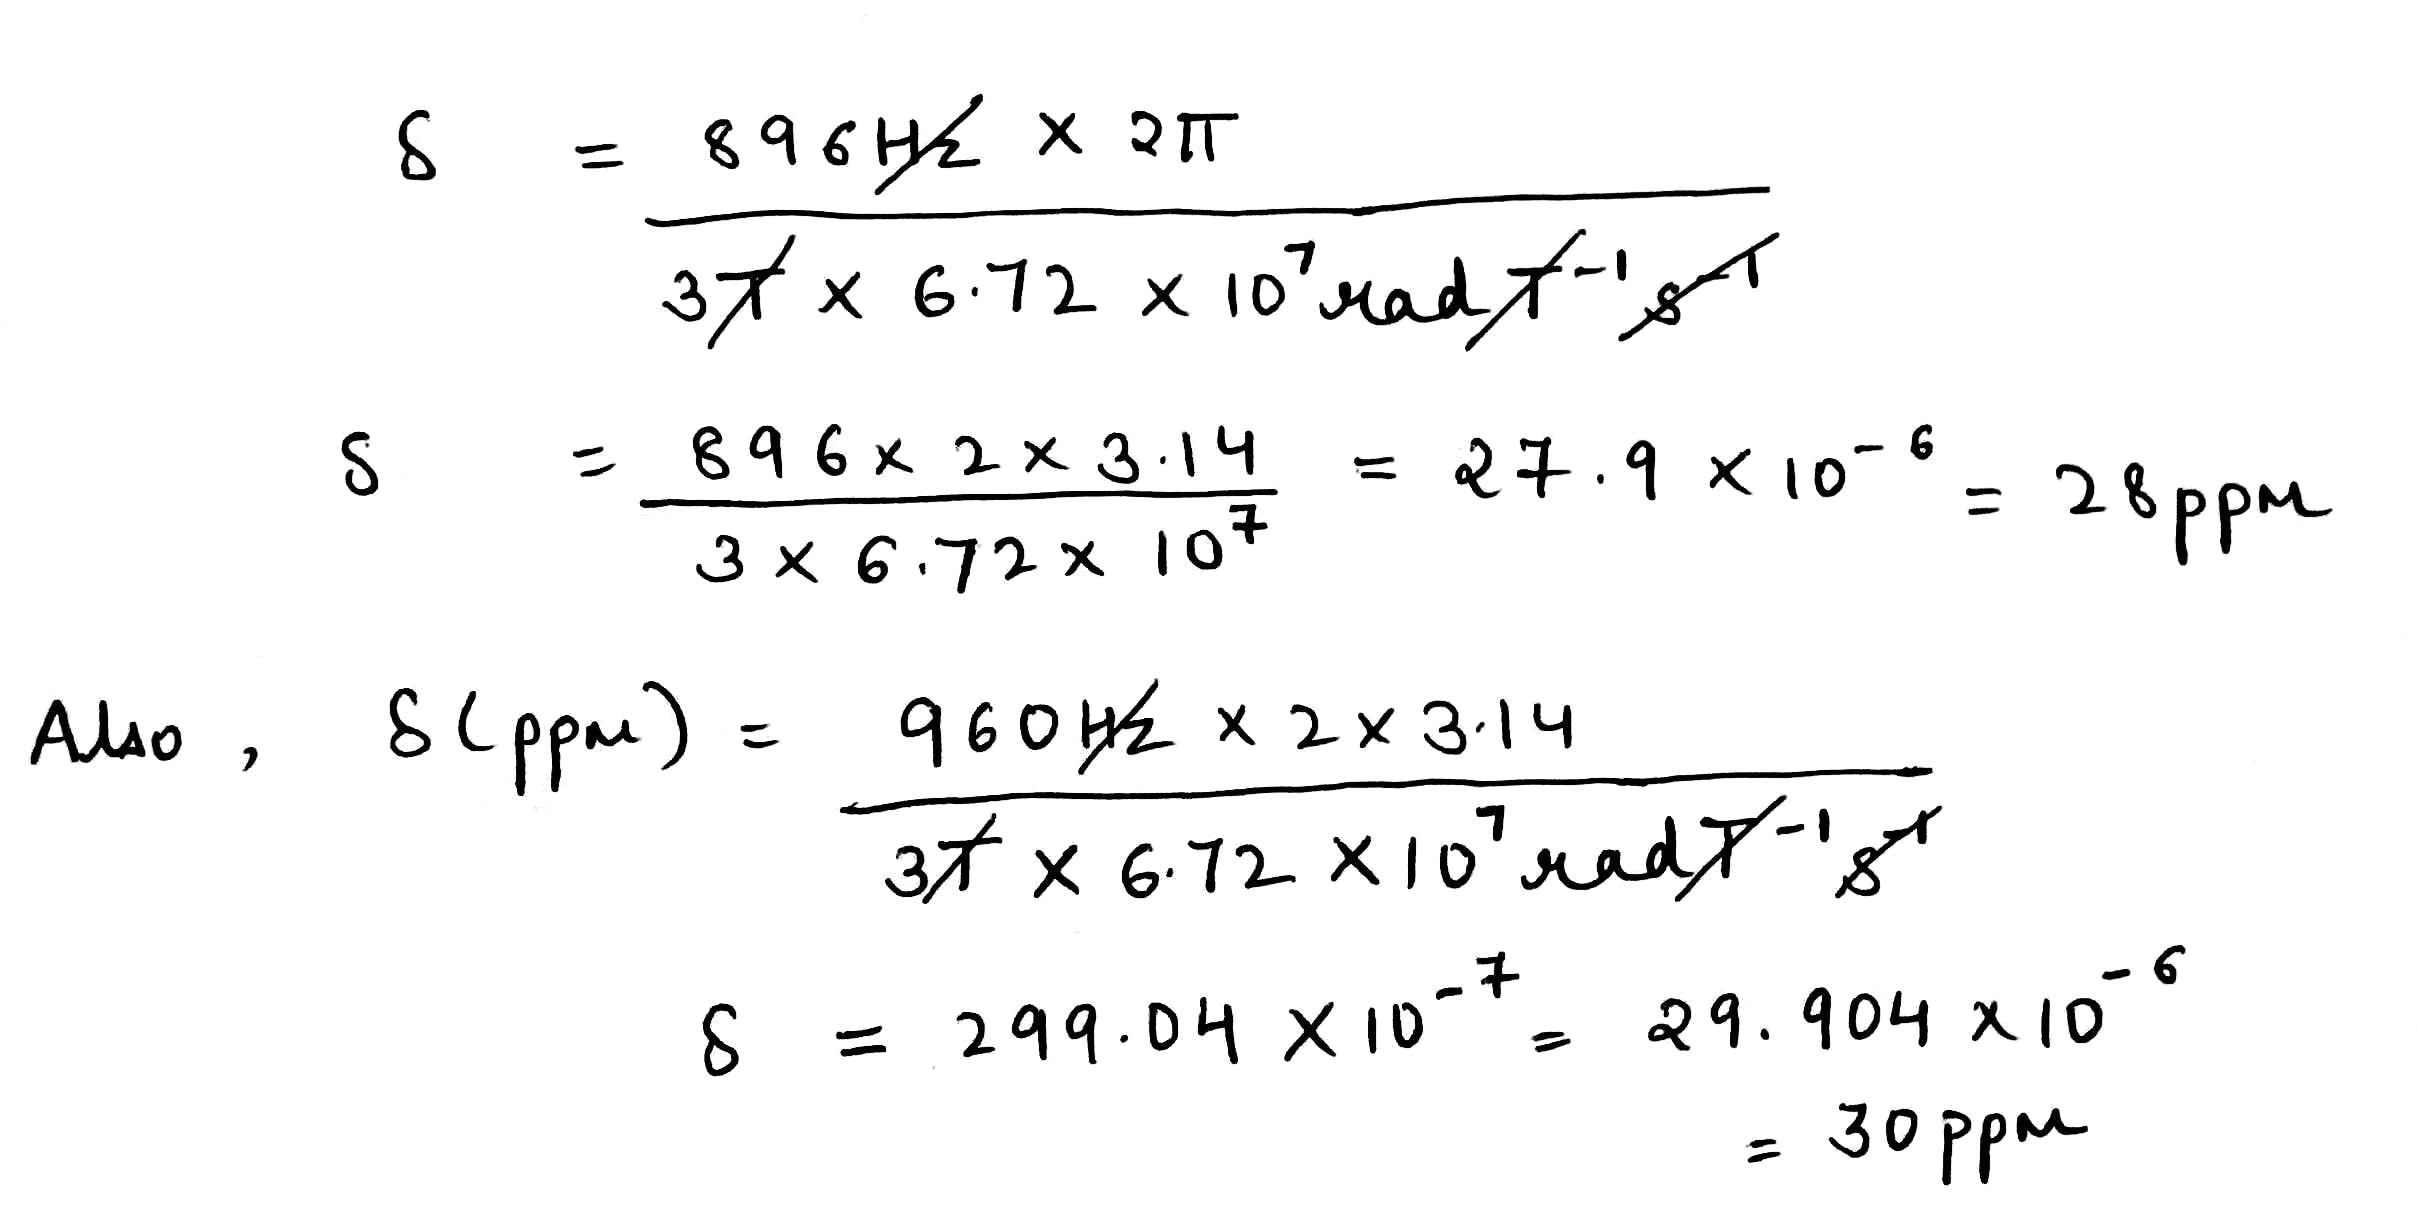 δ = 896 Hz × 2π
3T × 6.72 × 10⁷ rad T⁻¹ s⁻¹
δ = 896 × 2 × 3.14 = 27.9 × 10⁻⁶ = 28 ppm
3 × 6.72 × 10⁷
Also, δ (ppm) = 960 Hz × 2 × 3.14
3T × 6.72 × 10⁷ rad T⁻¹ s⁻¹
δ = 299.04 × 10⁻⁷ = 29.904 × 10⁻⁶
= 30 ppm